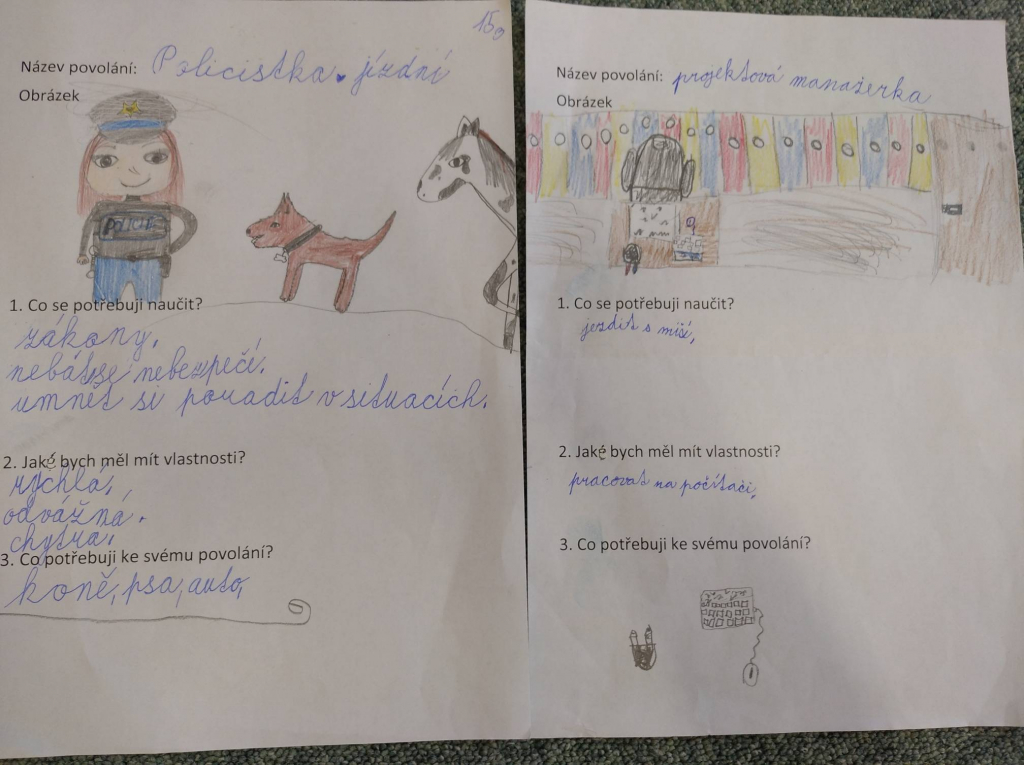 15.
Název povolání: Policistka. jízdní
Obrázek
POLICIE
1. Co se potřebuji naučit?
zákony,
nebát se nebezpečí.
umnět si poradit v situacích.
2. Jaké bych měl mít vlastnosti?
rychlá,
odvážná.
chytra.
3. Co potřebuji ke svému povolání?
koně, psa, auto,
Název povolání: projektová manažerka
Obrázek
1. Co se potřebuji naučit?
jezdit s miší,
2. Jaké bych měl mít vlastnosti?
pracovat na počítači,
3. Co potřebuji ke svému povolání?